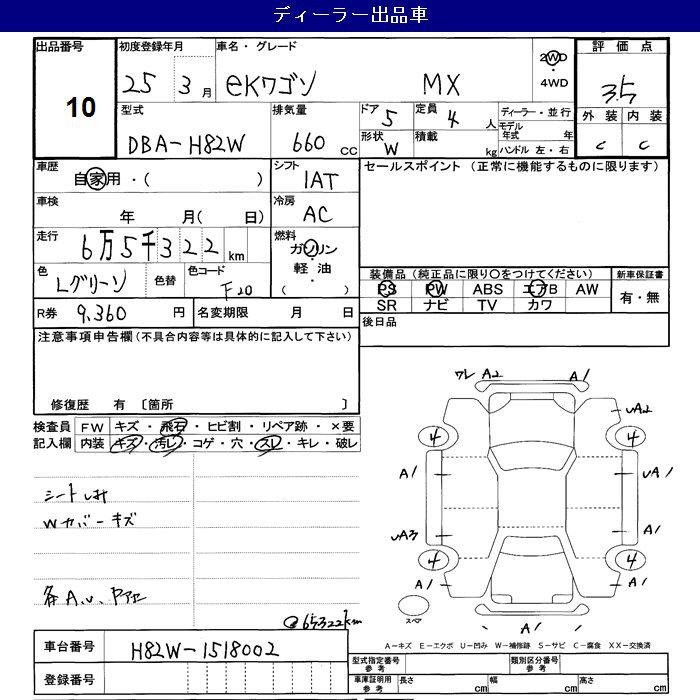 ディーラー出品車
出品番号 10
初度登録年月 25 3月
車名・グレード eKワゴン MX
2WD ・ 4WD
評価点 3.5
外装 内装
C C
型式 DBA-H82W
排気量 660 CC
ドア 5 定員 4 人
形状 W 積載 kg
ディーラー・並行
モデル年式 年
ハンドル 左・右
車歴 自家用・( )
シフト IAT
車検 年 月( 日)
冷房 AC
走行 6万5千322 km
燃料 ガソリン・軽油・( )
色 Lグリーン 色替 色コード F20
R券 9,360 円 名変期限 月 日
セールスポイント(正常に機能するものに限ります)
装備品(純正品に限り○をつけてください) 新車保証書
PS PW ABS エアB AW 有・無
SR ナビ TV カワ
後日品
注意事項申告欄(不具合内容等は具体的に記入して下さい)
修復歴 有 〔箇所 〕
検査員 FW キズ・飛石・ヒビ割・リペア跡・×要
記入欄 内装 キズ・汚レ・コゲ・穴・スレ・キレ・破レ
シートしみ
Wカバーキズ
各A.U.
@65322km
ワレ A2 A1
UA2
4 4
A1 UA1
UA3 A1
4 4
A1 A1
スペア
A1
A-キズ E-エクボ U-凹み W-補修跡 S-サビ C-腐食 XX-交換済
車台番号 H82W-1518002
登録番号
型式指定番号 参考 類別区分番号 参考
車庫証明用 参考 長さ cm 幅 cm 高さ cm